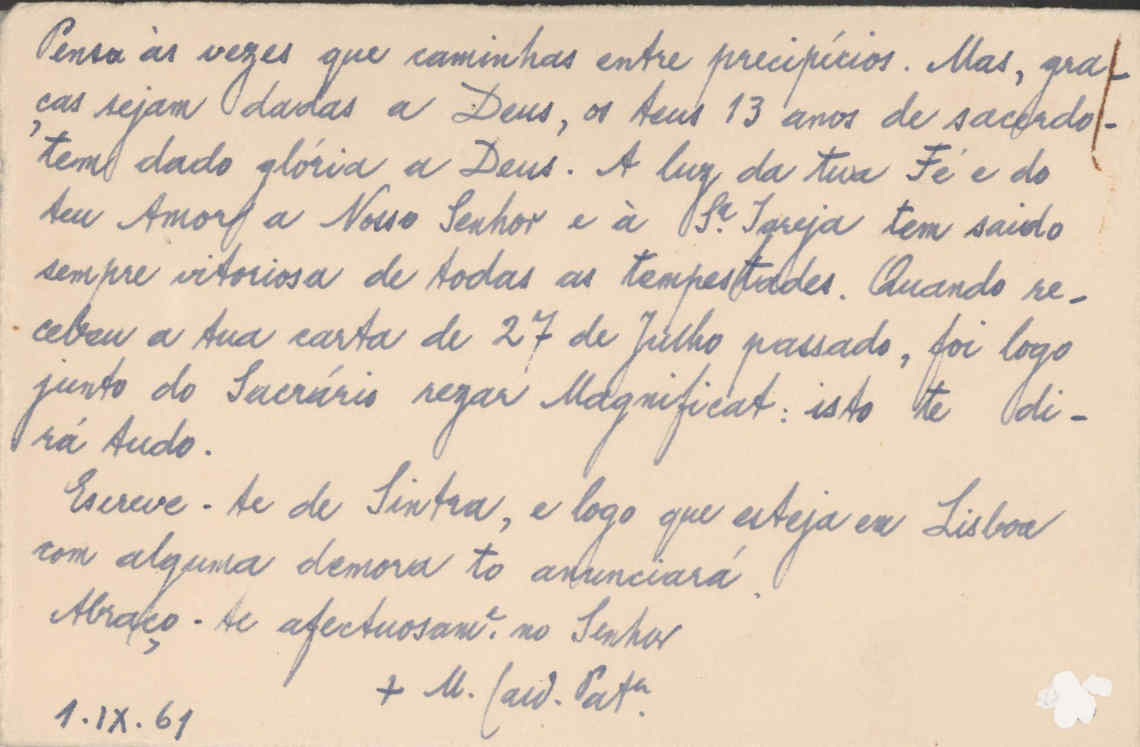 Pensa às vezes que caminhas entre precipícios. Mas, gra-
ças sejam dadas a Deus, os teus 13 anos de sacerdo-
tem dado glória a Deus. A luz da tua Fé e do
teu Amor a Nosso Senhor e à S.ª Igreja tem saido
sempre vitoriosa de todas as tempestades. Quando re-
cebeu a tua carta de 27 de Julho passado, foi logo
junto do Sacrário rezar Magnificat: isto te di-
rá tudo.
Escreve-te de Sintra, e logo que esteja em Lisboa
com alguma demora to anunciará.
Abraço-te afectuosam.e no Senhor
+ M. Card. Patr.
1.IX.61